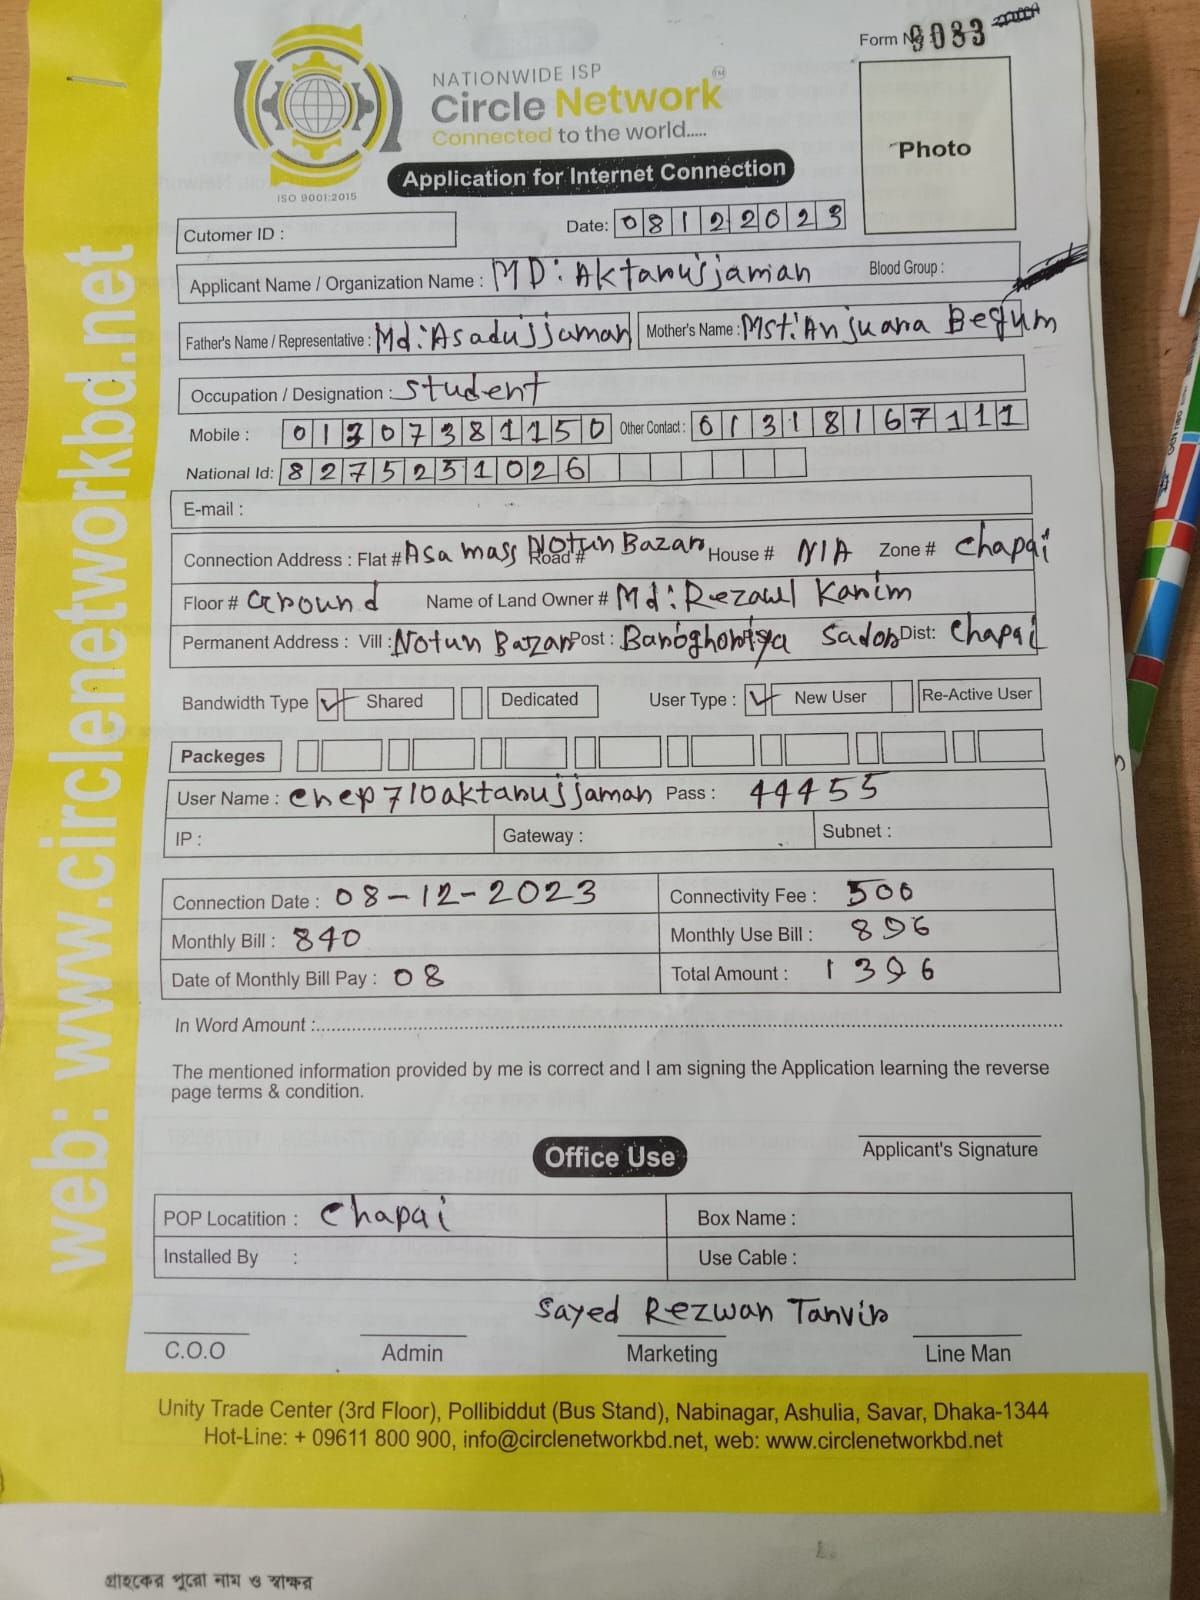 Form No 9083
NATIONWIDE ISP
Circle Network TM
Connected to the world.....
ISO 9001:2015
Application for Internet Connection
Photo
Cutomer ID :
Date: 08122023
Applicant Name / Organization Name : MD: Aktarujjaman Blood Group :
Father's Name / Representative : Md: Asadujjaman Mother's Name : Mst: Anjuara Begum
Occupation / Designation : Student
Mobile : 01307381150 Other Contact : 01318167111
National Id: 8275251026
E-mail :
Connection Address : Flat # Asa mass Road # Notun Bazar House # N/A Zone # Chapai
Floor # Ground Name of Land Owner # Md: Rezaul Karim
Permanent Address : Vill : Notun Bazar Post : Baroghoriya Sador Dist: Chapai
Bandwidth Type ✓ Shared Dedicated User Type : ✓ New User Re-Active User
Packeges
User Name : chep710aktarujjaman Pass : 44455
IP : Gateway : Subnet :
Connection Date : 08-12-2023 Connectivity Fee : 500
Monthly Bill : 840 Monthly Use Bill : 896
Date of Monthly Bill Pay : 08 Total Amount : 1396
In Word Amount :
The mentioned information provided by me is correct and I am signing the Application learning the reverse
page terms & condition.
Applicant's Signature
Office Use
POP Locatition : Chapai Box Name :
Installed By : Use Cable :
Sayed Rezwan Tanvir
C.O.O Admin Marketing Line Man
Unity Trade Center (3rd Floor), Pollibiddut (Bus Stand), Nabinagar, Ashulia, Savar, Dhaka-1344
Hot-Line: + 09611 800 900, info@circlenetworkbd.net, web: www.circlenetworkbd.net
web: www.circlenetworkbd.net
গ্রাহকের পুরো নাম ও স্বাক্ষর